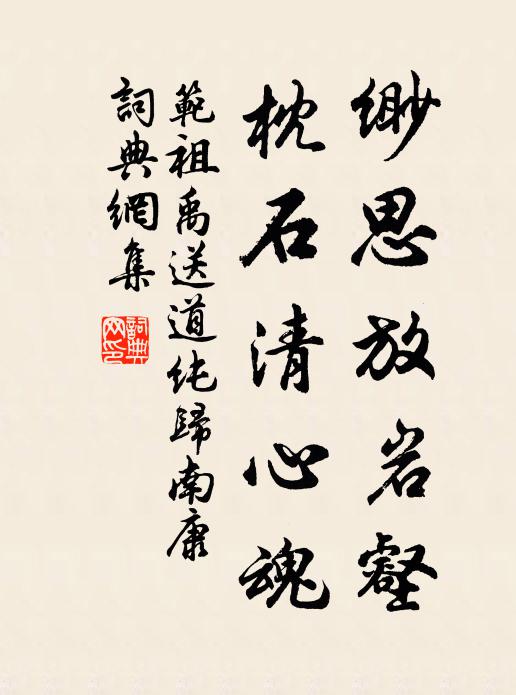 緲思放岩壑
枕石清心魂
範祖禹送道純歸南康
詞典網集
詞典網印